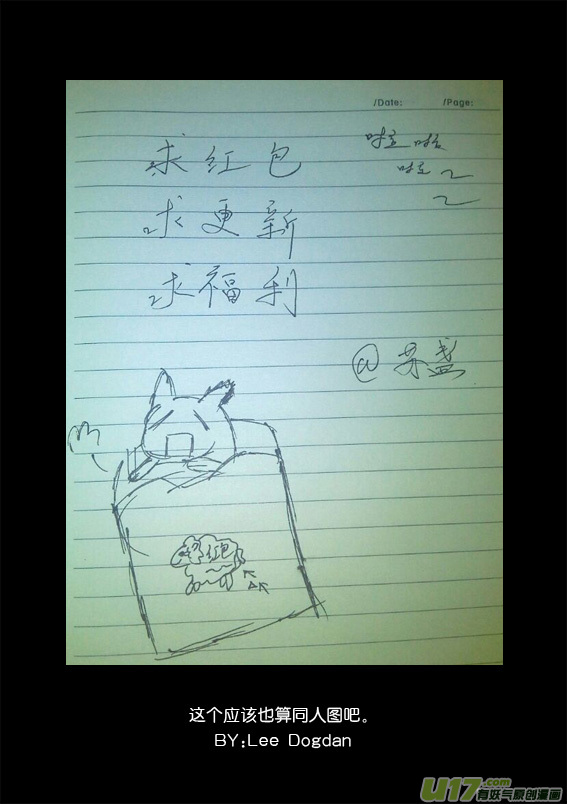 /Date: /Page:
求红包
啦啦
啦~
~
求更新
求福利
@苏盏
红包
这个应该也算同人图吧。
BY:Lee Dogdan
U17.com
有妖气原创漫画